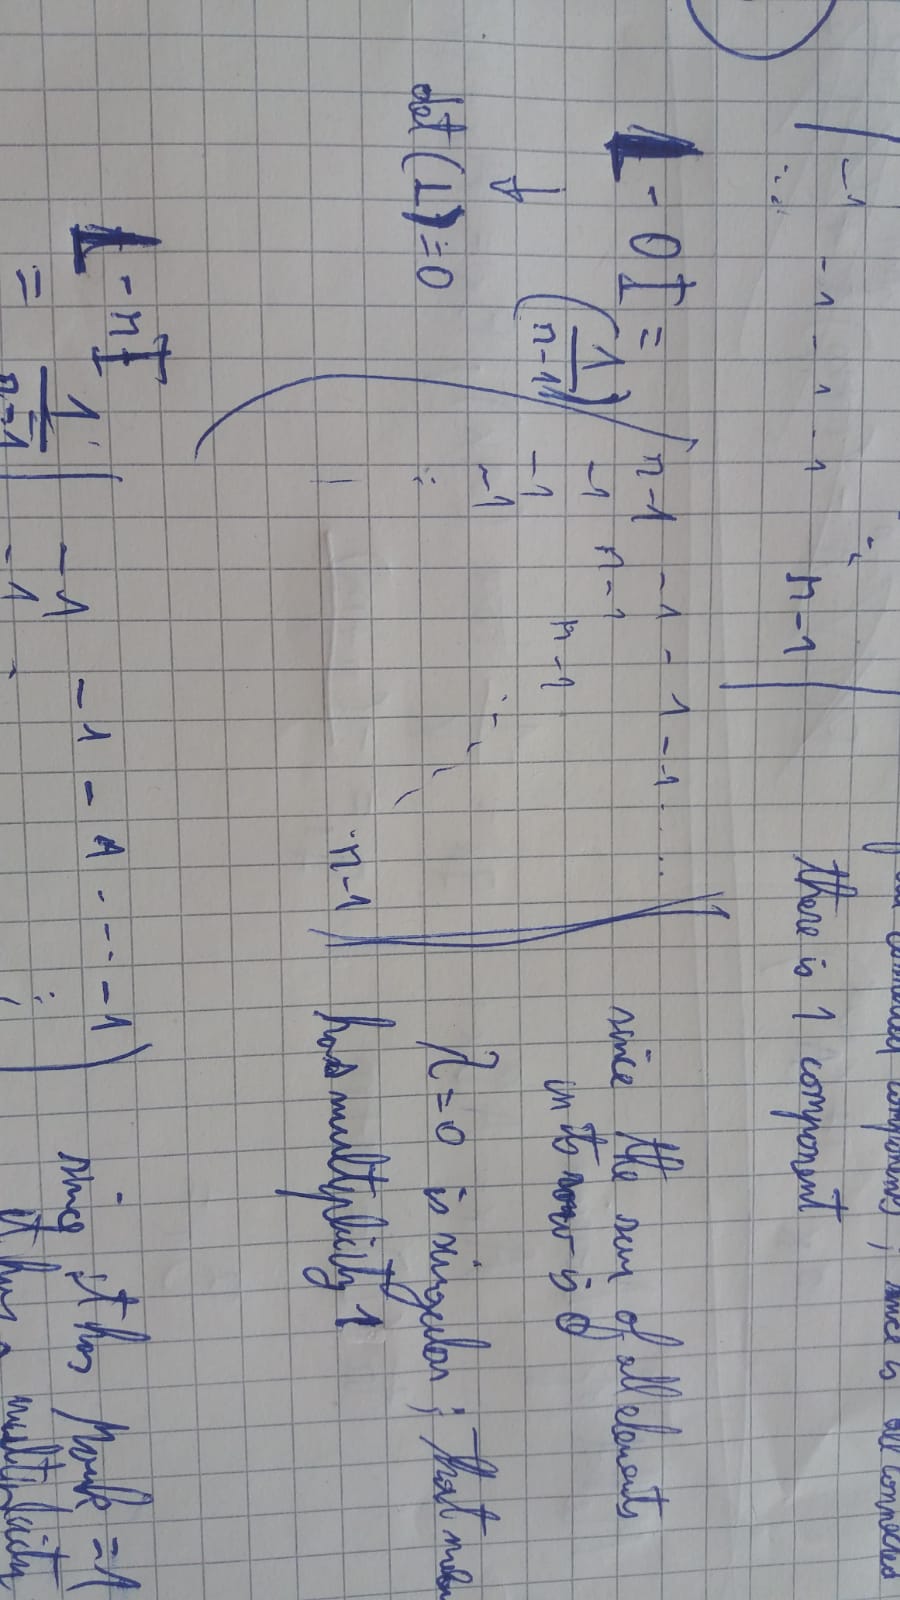 connected components; since is all connected
-1
-1 -1 -1 n-1
there is 1 component
L - 0I = (1/(n-1)) ( n-1 -1 -1 -1 ....
-1 n-1
-1 n-1
-1
n-1 )
since the sum of all elements
in its row is 0
↓
det(L)=0
λ=0 is singular; that
has multiplicity 1
L - nI
= 1/(n-1) ( -1 -1 -1 .... -1
-1
since it has rank =1
it has a multiplicity